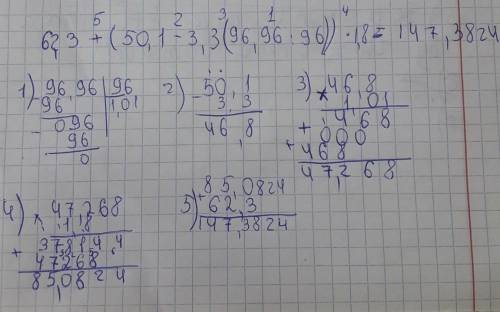 5 2 3 1 4
62,3 + (50,1 - 3,3 (96,96 : 96)) · 1,8 = 147,3824
1) 96,96 | 96
- 96 | 1,01
096
- 96
0
2) 50,1
- 3,3
46,8
3) 46,8
× 1,01
468
+ 000
+ 468
47,268
4) 47,268
× 1,8
378144
+ 47268
85,0824
5) 85,0824
+ 62,3
147,3824